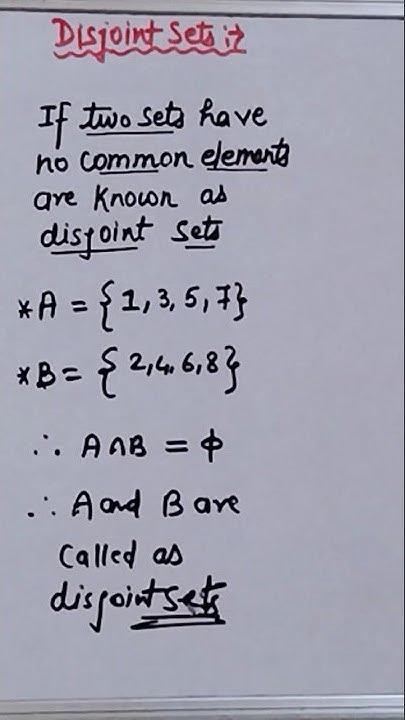 Disjoint Sets :→
If two sets have
no common elements
are known as
disjoint sets
*A = {1, 3, 5, 7}
*B = {2, 4, 6, 8}
∴ A∩B = ϕ
∴ A and B are
called as
disjoint sets